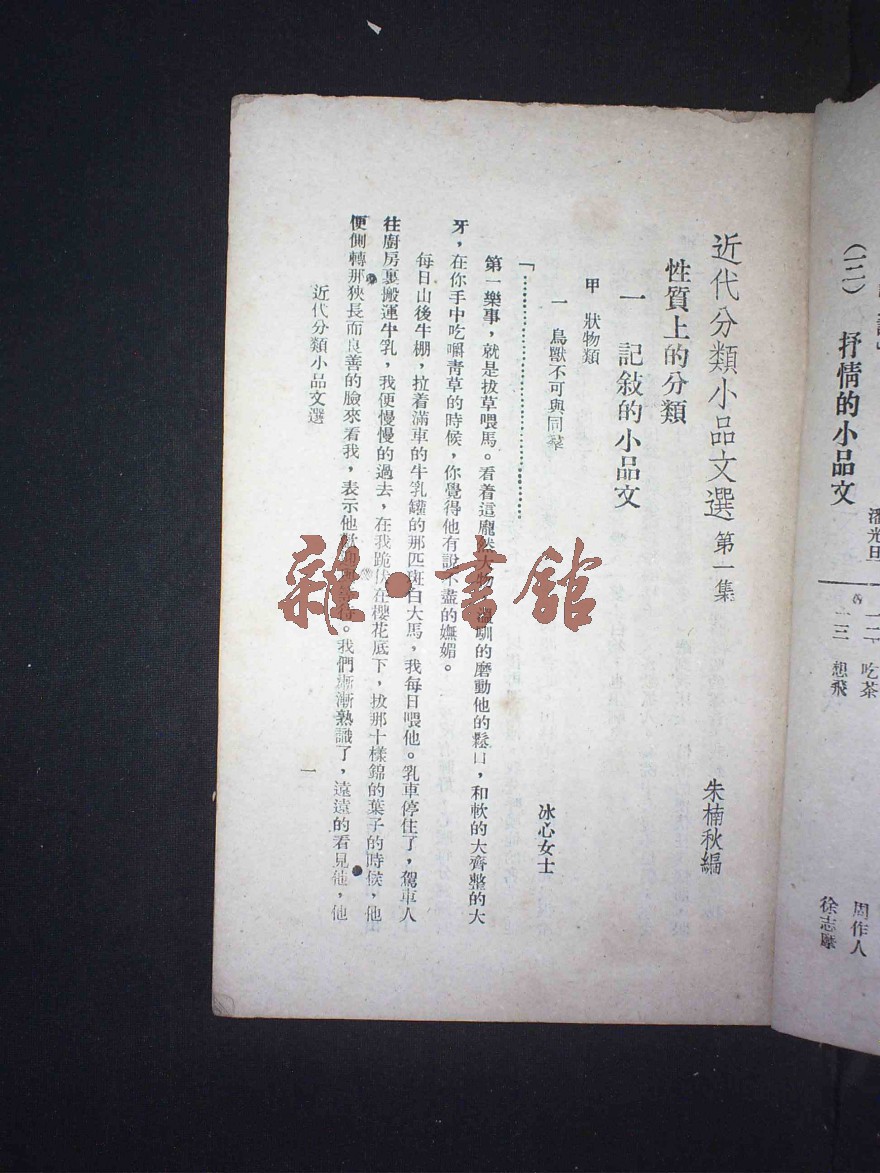 抒情的小品文
潘光旦
吃茶
周作人
一三 想飛
徐志摩
近代分類小品文選 第一集
朱楠秋編
性質上的分類
一 記敍的小品文
甲 狀物類
一 鳥獸不可與同羣
冰心女士
「…………………………
第一樂事，就是拔草喂馬。看着這龐然大物，溫馴的磨動他的鬆口，和軟的大齊整的大
牙，在你手中吃嚼青草的時候，你覺得他有說不盡的嫵媚。
每日山後牛棚，拉着滿車的牛乳罐的那匹斑白大馬，我每日喂他。乳車停住了，駕車人
往廚房裏搬運牛乳，我便慢慢的過去，在我跪伏在櫻花底下，拔那十樣錦的葉子的時候，他
便側轉那狹長而良善的臉來看我，表示他等待。我們漸漸熟識了，遠遠的看見他，他
近代分類小品文選
一
雜·書館